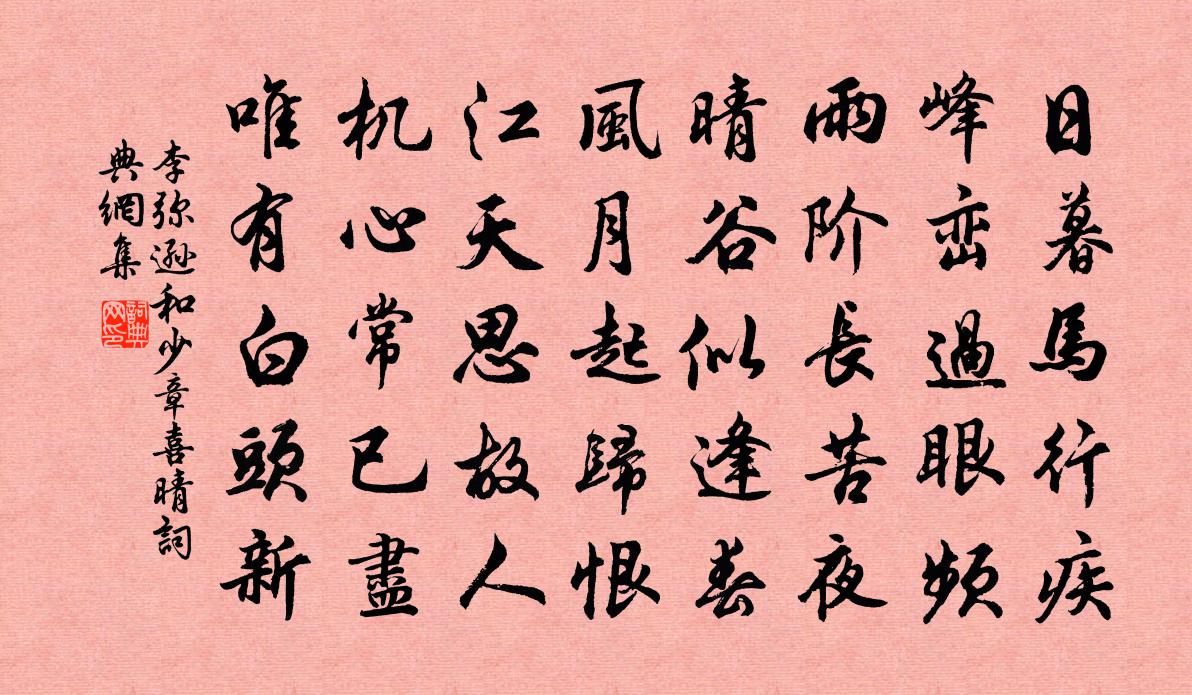 日暮馬行疾
峰峦過眼频
雨阶長苦夜
晴谷似逢春
風月起歸恨
江天思故人
机心常已盡
唯有白頭新
李弥逊和少章喜晴詞
典網集
詞典网印